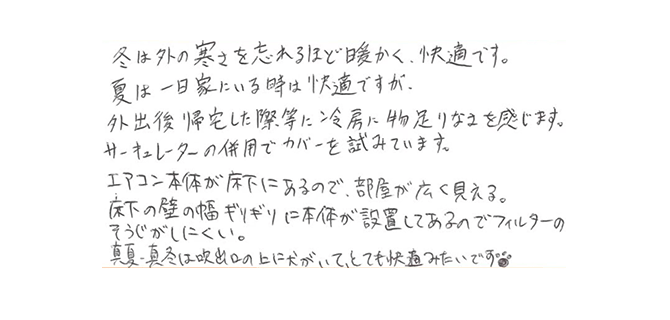 冬は外の寒さを忘れるほど暖かく、快適です。
夏は一日家にいる時は快適ですが、
外出後帰宅した際等に冷房に物足りなさを感じます。
サーキュレーターの併用でカバーを試みています。
エアコン本体が床下にあるので、部屋が広く見える。
床下の壁の幅ギリギリに本体が設置してあるのでフィルターの
そうじがしにくい。
真夏・真冬は吹出口の上に犬がいて、とても快適みたいです